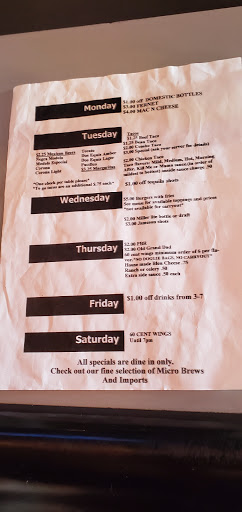 Monday
$1.00 off DOMESTIC BOTTLES
$3.00 FERNET
$4.00 MAC N CHEESE
Tuesday
$2.25 Mexican Beers
Negra Modelo
Modelo Especial
Corona
Corona Light
Tecate
Dos Equis Amber
Dos Equis Light
Pacifico
$5.25 Margaritas
*One check per table please*
*To go tacos are an additional $.75 each*
Tacos
$1.25 Beef Taco
$1.25 Bean Taco
$2.00 Combo Taco
$2.00 Special (ask your server for details)
$2.00 Chicken Taco
Taco Sauces: Mild, Medium, Hot,
mildest to hottest) inside sauce charge .50
$1.00 off tequila shots
Wednesday
$5.00 Burgers with fries
See menu for available toppings and prices
*not available for carryout*
$2.00 Miller lite bottle or draft
$3.00 Jameson shots
Thursday
$2.00 PBR
$2.00 Old Grand Dad
60 cent wings minimum order of 6 per flavor. *NO DOGGIE BAGS, NO CARRYOUT*
House made Bleu Cheese .75
Ranch or celery .50
Extra side sauce .50 each
Friday
$1.00 off drinks from 3-7
Saturday
60 CENT WINGS
Until 7pm
All specials are dine in only.
Check out our fine selection of Micro Brews
And Imports